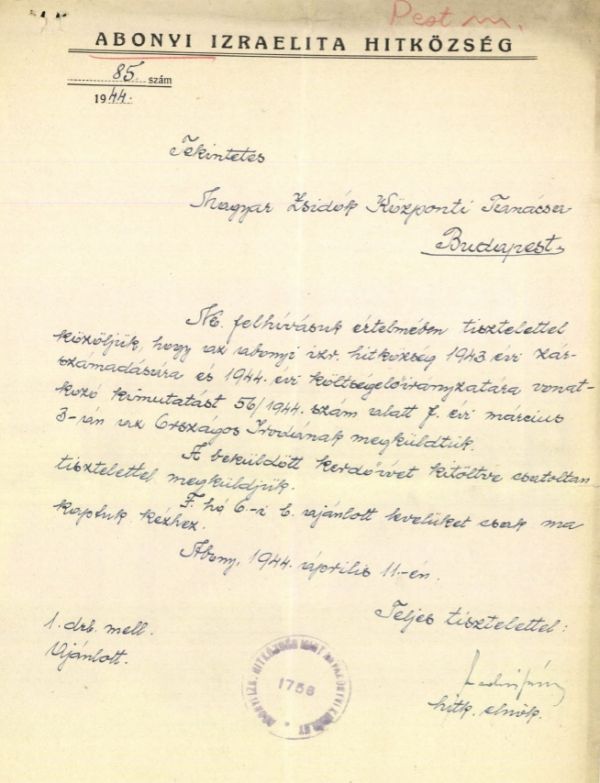 Pest m.
ABONYI IZRAELITA HITKÖZSÉG
85. szám
1944.
Tekintetes
Magyar Zsidók Központi Tanácsa
Budapest.
N. felhívásuk értelmében tisztelettel
közöljük, hogy az abonyi izr. hitközség 1943 évi zár-
számadására és 1944. évi költségelőirányzatára vonat-
kozó kimutatást 56/1944. szám alatt f. évi március
3-ián az Országos Irodának megküldtük.
A beküldött kérdőívet kitöltve csatoltan
tisztelettel megküldjük.
F. hó 6-i b. ajánlott levelüket csak ma
kaptuk kézhez.
Abony, 1944. április 11-én.
Teljes tisztelettel:
1. drb. mell.
Ajánlott.
hitk. elnök.
1758